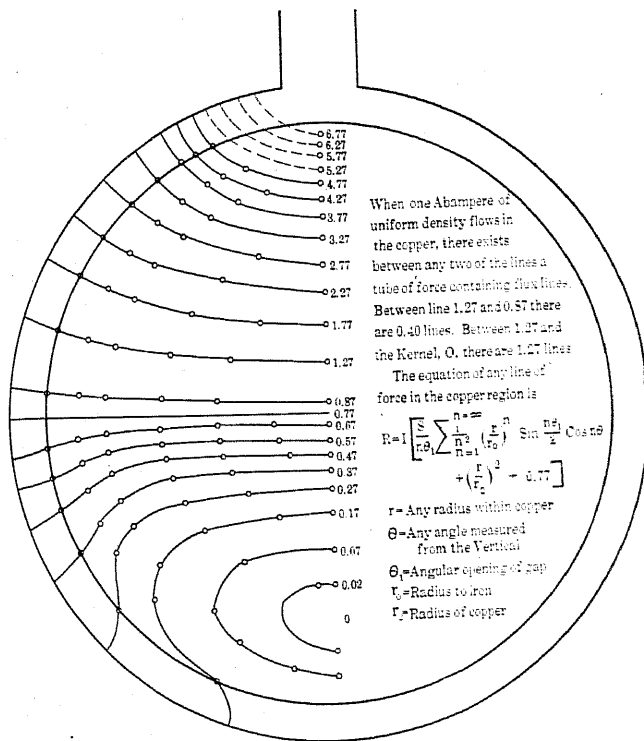 6.77
6.27
5.77
5.27
4.77
4.27
3.77
3.27
2.77
2.27
1.77
1.27
0.87
0.77
0.67
0.57
0.47
0.37
0.27
0.17
0.07
0.02
0
When one Abampere of
uniform density flows in
the copper, there exists
between any two of the lines a
tube of force containing flux lines.
Between line 1.27 and 0.87 there
are 0.40 lines. Between 1.27 and
the Kernel, O, there are 1.27 lines
The equation of any line of
force in the copper region is
n=∞
R=I[8/πθ₁ ∑ 1/n² (r/r₀)ⁿ Sin nθ₁/2 Cos nθ
n=1
+(r/r₂)² + 0.77]
r=Any radius within copper
θ=Any angle measured
from the Vertical
θ₁=Angular opening of gap
r₀=Radius to iron
=Radius of copper